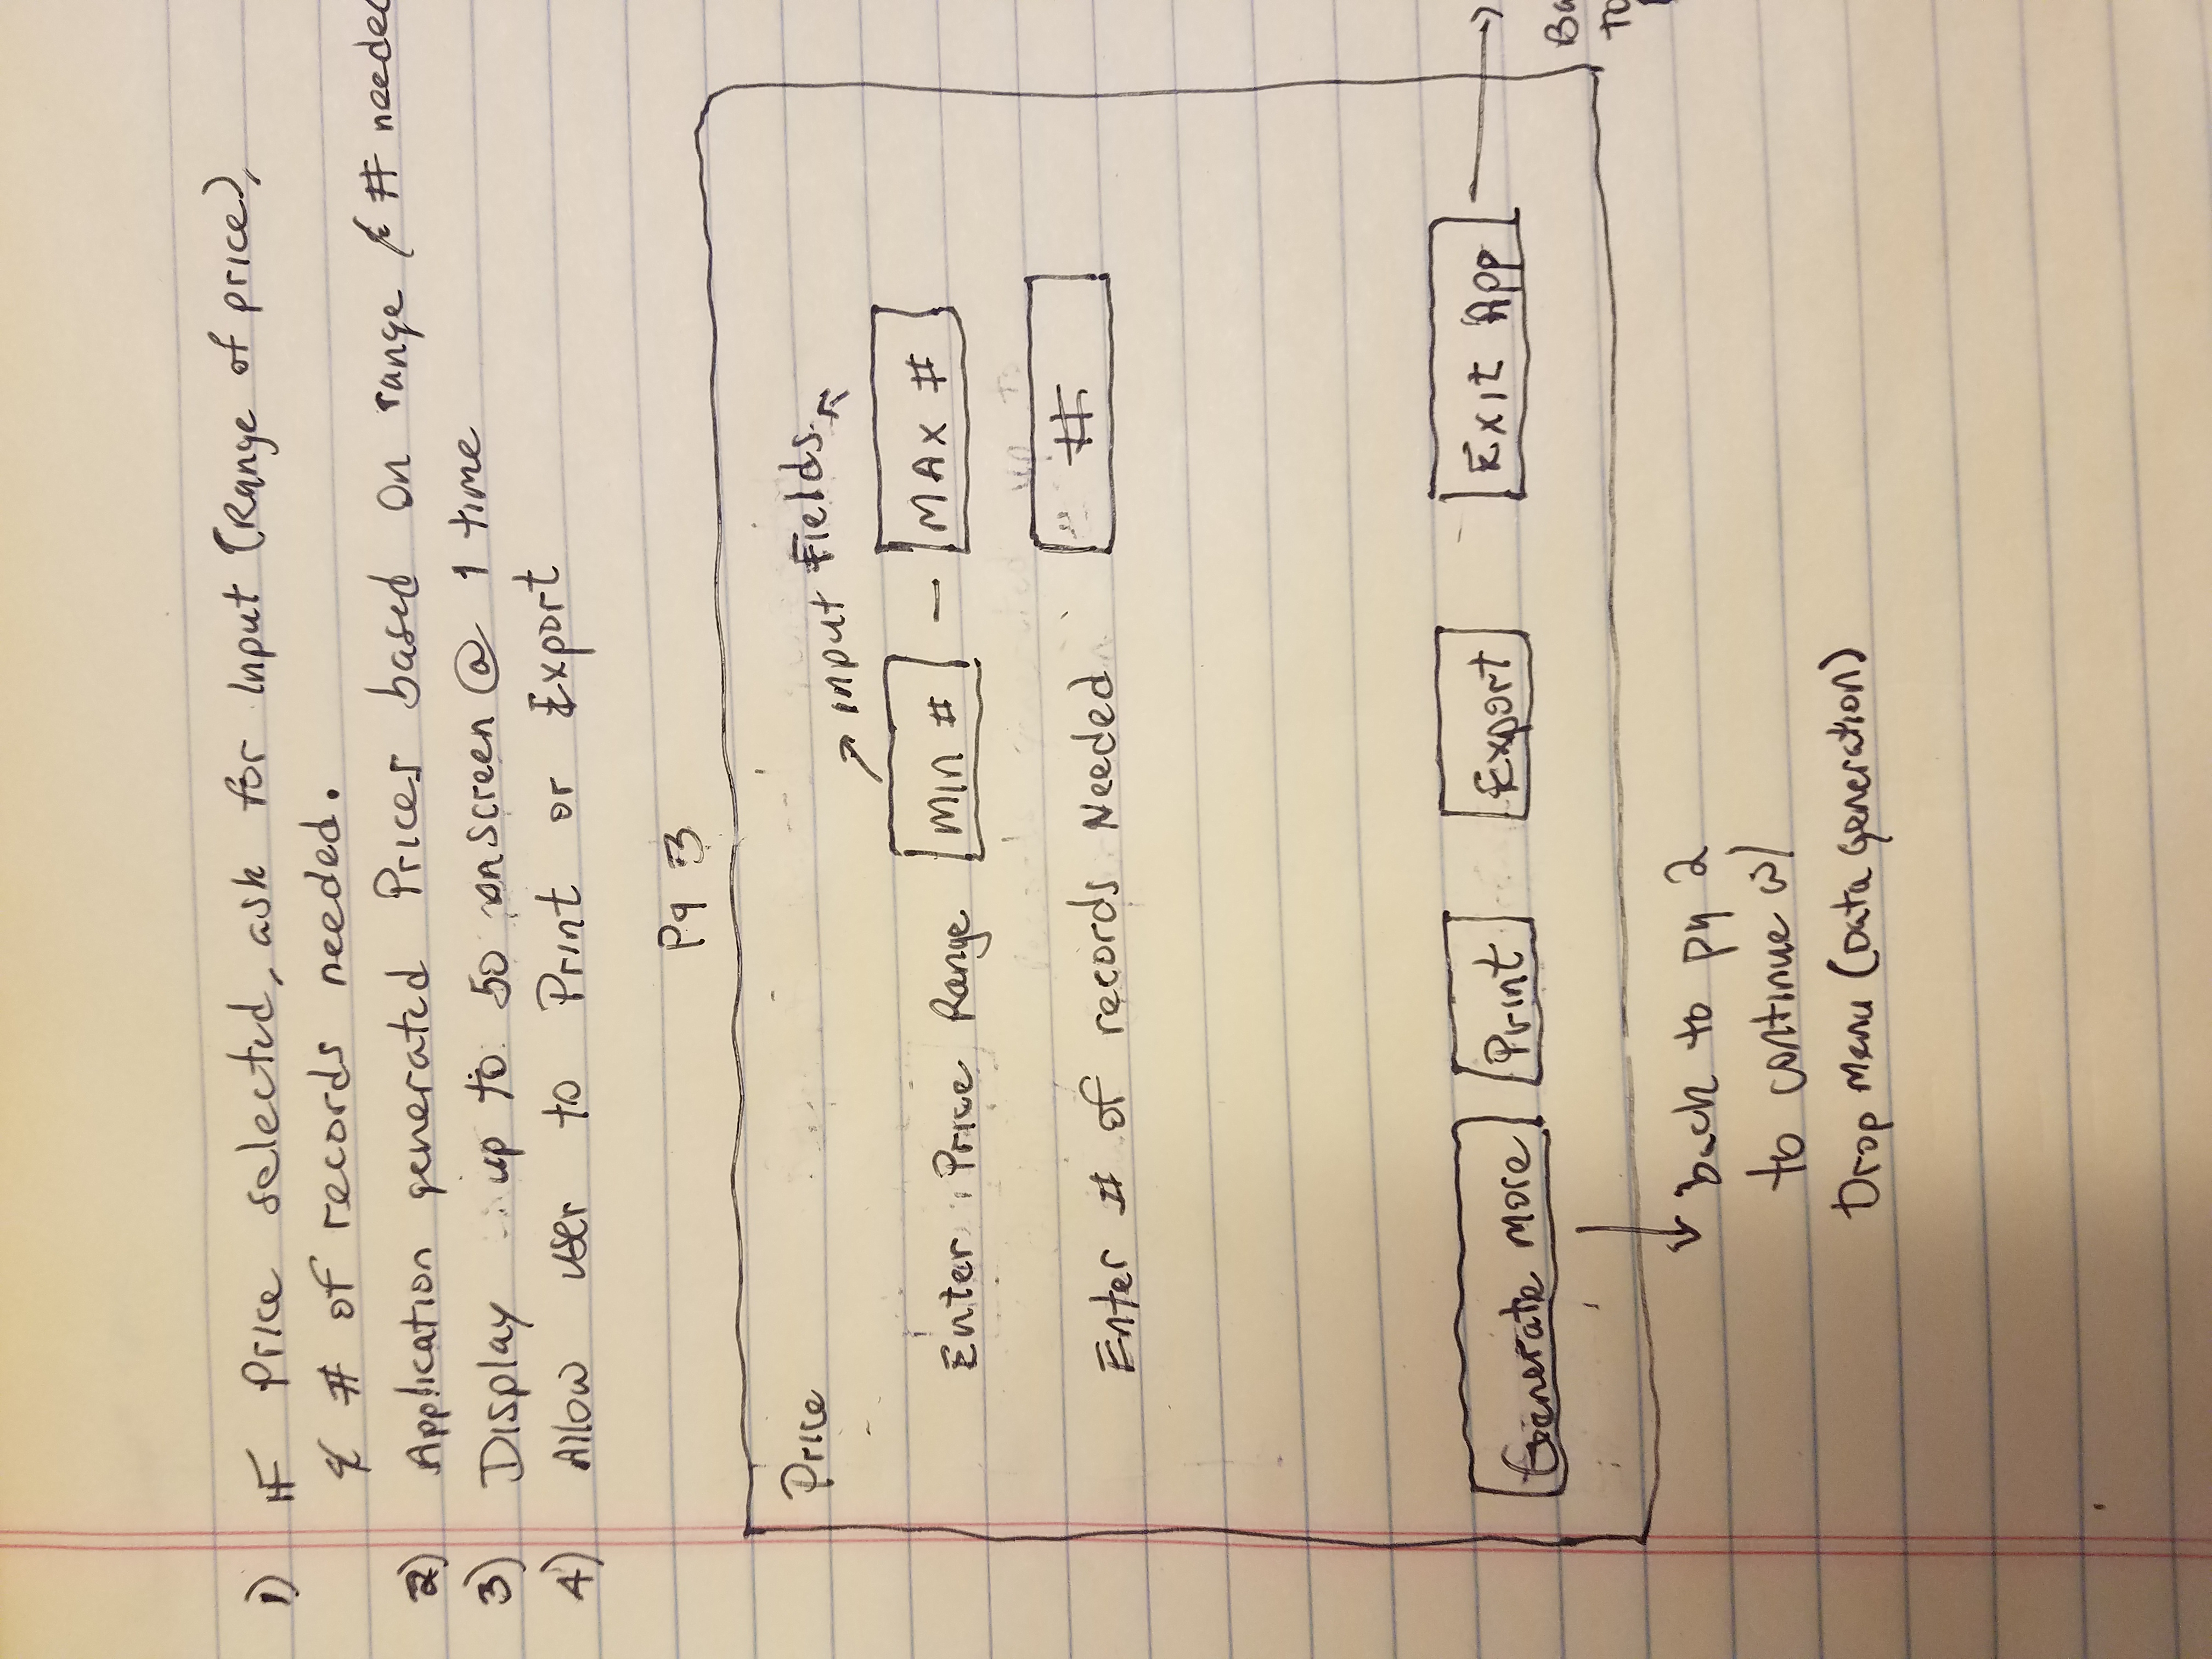 1) IF Price selected, ask for Input (Range of price),
& # of records needed.
2) Application generated Prices based on range & # needed
3) Display up to 50 on screen @ 1 time
4) Allow user to Print or Export
Pg 3
Price
Input Fields
Enter Price Range Min # - MAX #
Enter # of records Needed #
Generate More Print Export Exit App
Back to pg 2
to continue w/
Drop Menu (Data Generation)